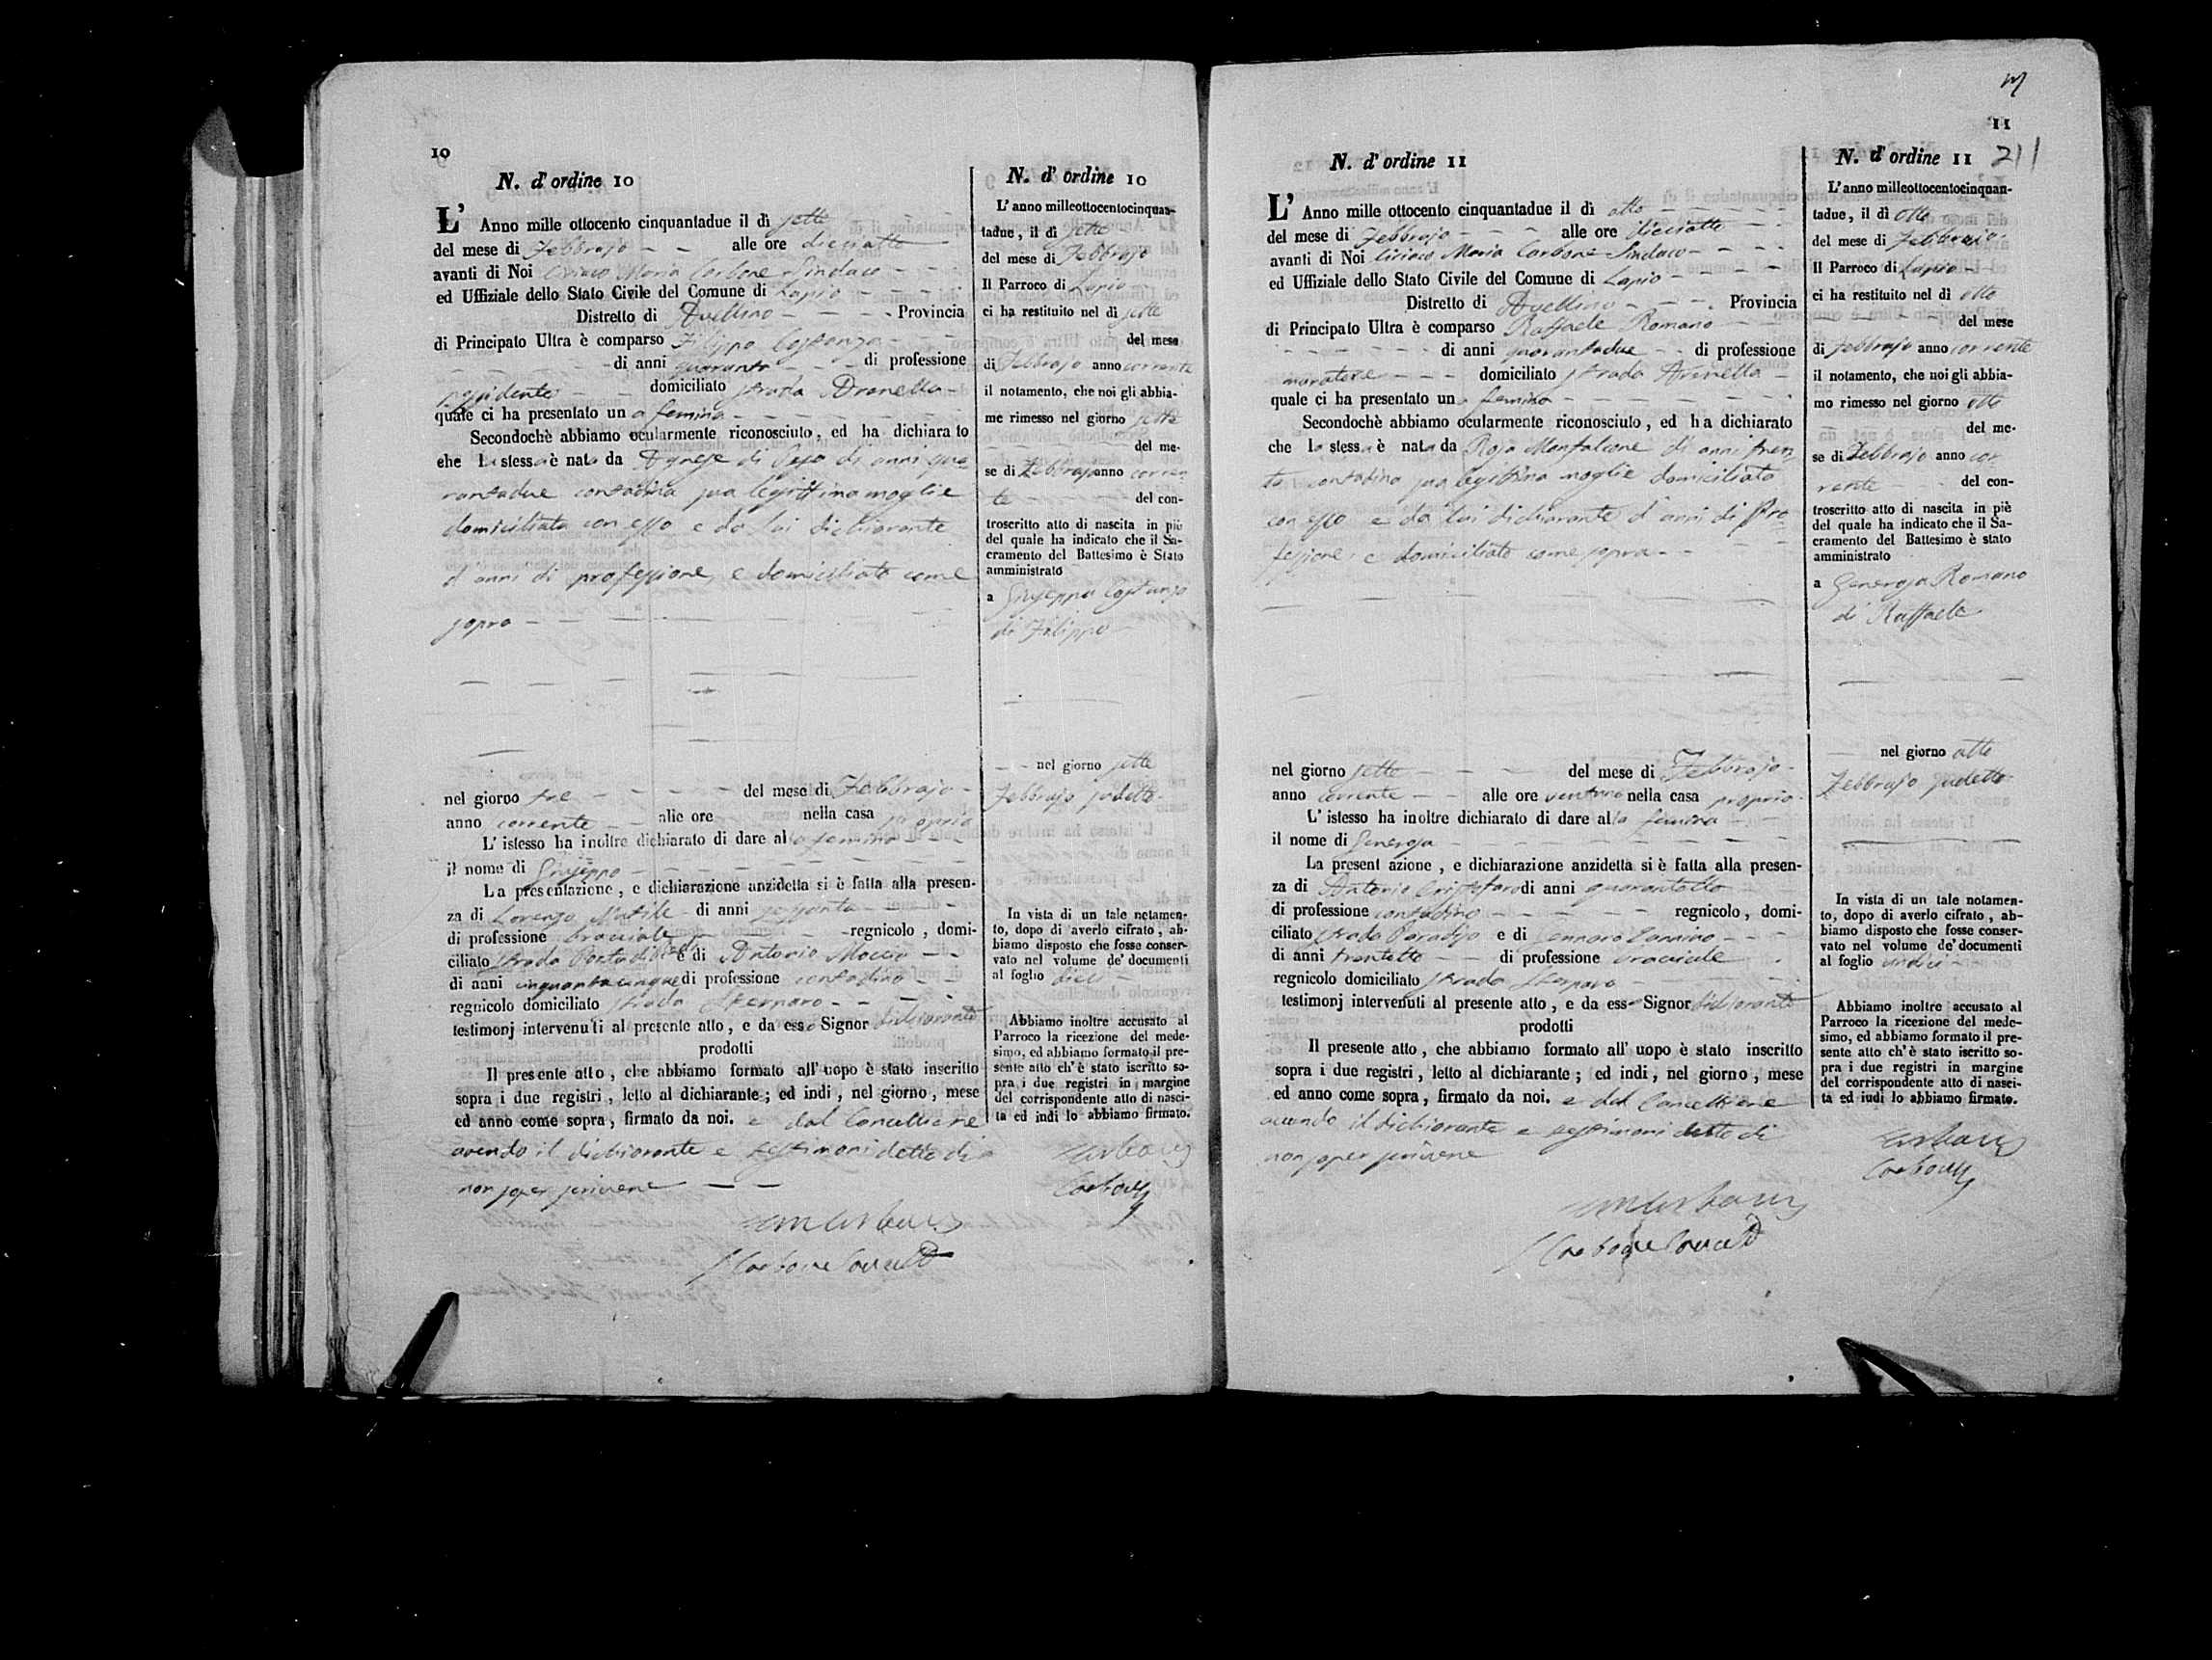 10
N. d' ordine 10
L' Anno mille ottocento cinquantadue il dì sette
del mese di Febbrajo - - alle ore dieciotto
avanti di Noi Ciriaco Maria Carbone Sindaco - -
ed Uffiziale dello Stato Civile del Comune di Lapio - - - -
Distretto di Avellino - - - - Provincia
di Principato Ultra è comparso Filippo Costanzo - -
- - - - - di anni quaranta - - - di professione
domiciliato strada Aranella
quale ci ha presentato una femina - - - - -
Secondochè abbiamo ocularmente riconosciuto, ed ha dichiarato
che la stessa è nata da Agnese di di anni qua
rantadue contadina sua legittima moglie
domiciliata con esso e da lui dichiarante
d'anni di professione, e domiciliato come
sopra - - - - -
nel giorno tre - - - - - del mese di Febbrajo -
anno corrente - - alle ore nella casa propria
L' istesso ha inoltre dichiarato di dare alla femina - - -
il nome di Giuseppa - - - - - -
La presentazione, e dichiarazione anzidetta si è fatta alla presen-
za di Lorenzo di anni sessanta - - - -
di professione bracciale - - - - regnicolo, domi-
ciliato strada e di Antonio - -
di anni cinquantacinque di professione contadino - -
regnicolo domiciliato strada - - - -
testimonj intervenuti al presente atto, e da esso Signor dichiarante
prodotti
Il presente atto, che abbiamo formato all' uopo è stato inscritto
sopra i due registri, letto al dichiarante; ed indi, nel giorno, mese
ed anno come sopra, firmato da noi. e dal Cancelliere
avendo il dichiarante e testimoni detto di
non saper scrivere - -
N. d' ordine 10
L' anno milleottocentocinquan-
tadue, il dì sette
del mese di Febbrajo
Il Parroco di Lapio -
ci ha restituito nel dì sette
del mese
di Febbrajo anno corrente
il notamento, che noi gli abbia-
mo rimesso nel giorno sette
del me-
se di Febbrajo anno corren
te - - del con-
troscritto atto di nascita in piè
del quale ha indicato che il Sa-
cramento del Battesimo è Stato
amministrato
a Giuseppa Costanzo
di Filippo
- - nel giorno sette
Febbrajo sudetto -
In vista di un tale notamen-
to, dopo di averlo cifrato, ab-
biamo disposto che fosse conser-
vato nel volume de' documenti
al foglio dieci -
Abbiamo inoltre accusato al
Parroco la ricezione del mede-
simo, ed abbiamo formato il pre-
sente atto ch' è stato iscritto so-
pra i due registri in margine
del corrispondente atto di nasci-
ta ed indi lo abbiamo firmato.
Carbone
11
N. d' ordine 11
L' Anno mille ottocento cinquantadue il dì otto - - - - -
del mese di Febbrajo - - - alle ore dieciotto - -
avanti di Noi Ciriaco Maria Carbone Sindaco - - - -
ed Uffiziale dello Stato Civile del Comune di Lapio - - - - -
Distretto di Avellino - - - . Provincia
di Principato Ultra è comparso Raffaele Romano - -
- - - - - - di anni quarantadue - - di professione
muratore - - - domiciliato strada Aranella -
quale ci ha presentato una femina - - - - - -
Secondochè abbiamo ocularmente riconosciuto, ed ha dichiarato
che la stessa è nata da Rosa Monfalcone di anni tren
ta contadina sua legittima moglie domiciliata
con esso e da lui dichiarante d'anni di Pro
fessione, e domiciliato come sopra - -
nel giorno sette - - - - del mese di Febbrajo -
anno corrente - - alle ore ventuno nella casa propria -
L' istesso ha inoltre dichiarato di dare alla femina - -
il nome di Generosa - - - - - -
La present azione, e dichiarazione anzidetta si è fatta alla presen-
za di Antonio di anni quarantotto
di professione contadino - - - - - regnicolo, domi-
ciliato strada Paradiso e di Gennaro - -
di anni trentotto - - di professione bracciale .
regnicolo domiciliato strada - - - -
testimonj intervenuti al presente atto, e da esso Signor dichiarante
prodotti
Il presente atto, che abbiamo formato all' uopo è stato inscritto
sopra i due registri, letto al dichiarante; ed indi, nel giorno, mese
ed anno come sopra, firmato da noi. e dal Cancelliere
avendo il dichiarante e testimoni detto di
non saper scrivere
N. d' ordine 11 211
L' anno milleottocentocinquan-
tadue, il dì otto
del mese di Febbrajo
Il Parroco di Lapio -
ci ha restituito nel dì otto
- - - - del mese
di Febbrajo anno corrente
il notamento, che noi gli abbia-
mo rimesso nel giorno otto
del me-
se di Febbrajo anno cor
rente - - del con-
troscritto atto di nascita in piè
del quale ha indicato che il Sa-
cramento del Battesimo è stato
amministrato
a Generosa Romano
di Raffaele
nel giorno otto
Febbrajo sudetto
In vista di un tale notamen-
to, dopo di averlo cifrato, ab-
biamo disposto che fosse conser-
vato nel volume de' documenti
al foglio undici - -
Abbiamo inoltre accusato al
Parroco la ricezione del mede-
simo, ed abbiamo formato il pre-
sente atto ch' è stato iscritto so-
pra i due registri in margine
del corrispondente atto di nasci-
ta ed indi lo abbiamo firmato.
Carbone